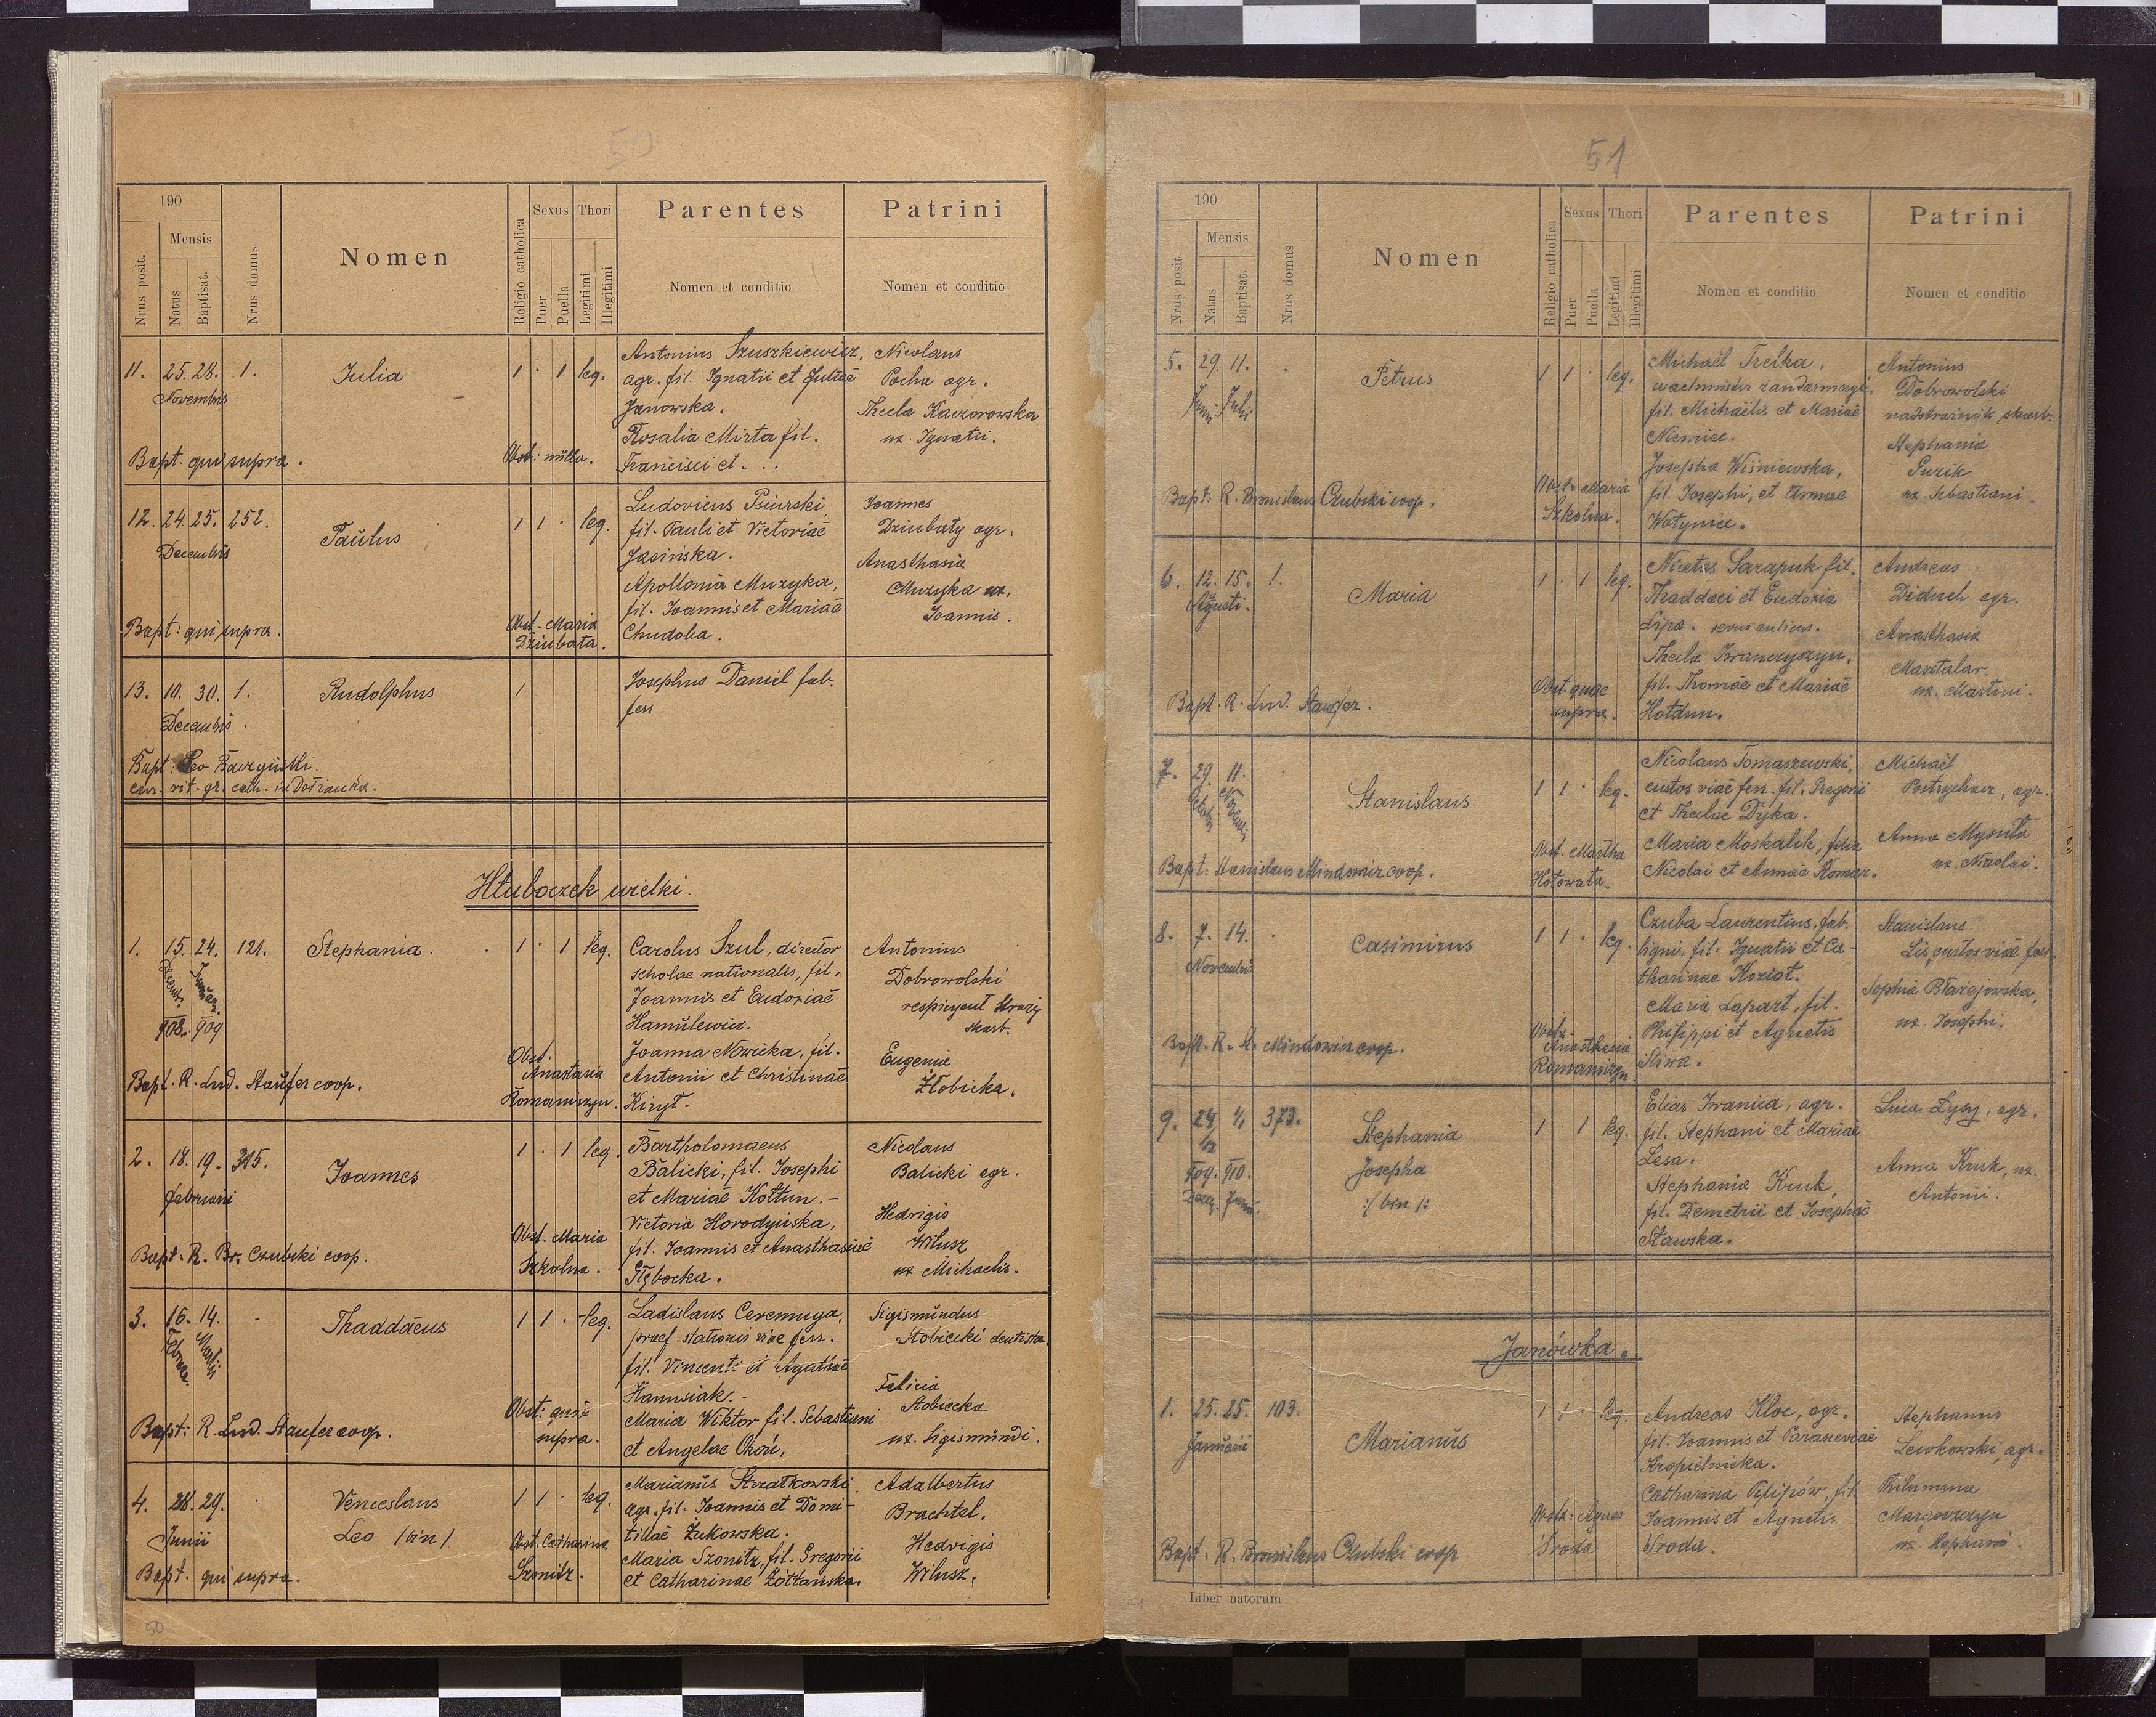 50
190
Nrus posit.
Mensis
Natus
Baptisat.
Nrus domus
Nomen
Religio catholica
Sexus
Puer
Puella
Thori
Legitimi
Illegitimi
Parentes
Nomen et conditio
Patrini
Nomen et conditio
11. 25. 28. 1. Julia 1 · 1 leg.
Novembris
Antonius Szuszkiewicz,
agr. fil. Ignatii et Juliae
Janowska.
Rosalia Mirta fil.
Francisci et . . .
Nicolaus
Pocha agr.
Thecla Kaczorowska
ux. Ignatii.
Obst: nulla.
Bapt. qui supra.
12. 24. 25. 252. Paulus 1 1 · leg.
Decembris
Ludovicus Psiurski
fil. Pauli et Victoriae
Jasińska.
Apollonia Muzyka,
fil. Joannis et Mariae
Chudoba.
Joannes
Dziubaty agr.
Anasthasia
Muzyka ux.
Joannis.
Obst. Maria
Dziubata.
Bapt: qui supra.
13. 10. 30. 1. Rudolphus 1
Decembris.
Josephus Daniel fab.
ferr.
Bapt: Leo Baczyński
cur. rit. gr. cath. in Dołżanka.
Hłuboczek wielki.
1. 15. 24. 121. Stephania. 1 · 1 leg.
908. 909
Carolus Szul, director
scholae nationalis, fil.
Joannis et Eudoxiae
Hamulewicz.
Joanna Nowicka, fil.
Antonii et Christinae
Kiryt.
Antonius
Dobrowolski
respicyent straży
skarb.
Eugenia
Złobicka.
Obst.
Anastasia
Romaniszyn.
Bapt. R. Lud. Staufer coop.
2. 18. 19. 315. Joannes 1 · 1 leg.
Februarii
Bartholomaeus
Balicki, fil. Josephi
et Mariae Kottun. -
Victoria Horodyńska,
fil. Joannis et Anasthasiae
Głębocka.
Nicolaus
Balicki agr.
Hedvigis
Wilusz
ux Michaelis.
Obst. Maria
Szkolna.
Bapt. R. Br. Czubski coop.
3. 16. 14. · Thaddaeus 1 1 · leg.
Februa. Martii
Ladislaus Ceremuga,
praef. stationis viae ferr.
fil. Vincenti et Agathae
Hanusiak. -
Maria Wiktor fil. Sebastiani
et Angelae Okoń.
Sigismundus
Stobiecki dentista.
Felicia
Stobiecka
ux. Sigismundi.
Obst: quae
supra.
Bapt: R. Lud. Staufer coop.
4. 28. 29. · Venceslaus 1 1 · leg.
Junii Leo /bin/
Marianus Strzałkowski
agr. fil. Joannis et Domi-
tillae Żukowska.
Maria Szonitz, fil. Gregorii
et Catharinae Żółtańska.
Adalbertus
Brachtel.
Hedvigis
Wilusz.
Obst. Catharina
Szonitz.
Bapt. qui supra.
50
51
190
Nrus posit.
Mensis
Natus
Baptisat.
Nrus domus
Nomen
Religio catholica
Sexus
Puer
Puella
Thori
Legitimi
Illegitimi
Parentes
Nomen et conditio
Patrini
Nomen et conditio
5. 29. 11. · Petrus 1 1 · leg.
Junii Julii
Michaël Trelka,
wachmistrz żandarmeryi
fil. Michaëlis et Mariae
Niemiec.
Josepha Wiśniewska,
fil. Josephi, et Annae
Wołyniec.
Antonius
Dobrowolski
nadstrażnik skarb.
Stephania
Guzik
ux. Sebastiani.
Obst. Maria
Szkolna.
Bapt: R. Bronislaus Czubski coop.
6. 12. 15. 1. Maria 1 · 1 leg.
Augusti.
Nicetas Sarapuk fil.
Thaddaei et Eudoxia
Lipa. servus aulicus.
Thecla Iwanczyszyn,
fil. Thomae et Mariae
Hołdun.
Andreas
Diduch agr.
Anasthasia
Mavtalar
ux. Martini.
Obst. quae
supra.
Bapt. R. Lud. Staufer.
7. 29. 11. · Stanislaus 1 1 · leg.
Nicolaus Tomaszewski,
custos viae ferr. fil. Gregorii
et Theclae Dyka.
Maria Moskalik, filia
Nicolai et Annae Roman.
Michaël
Postrychacz, agr.
Anna Mysuta
ux. Nicolai.
Obst. Martha
Hołowata.
Bapt: Stanislaus Mindowicz coop.
8. 7. 14. · Casimirus 1 1 · leg.
Novembris
Czuba Laurentius, fab.
ligni, fil. Ignatii et Ca-
tharinae Kozioł.
Maria Lapart, fil.
Philippi et Agnetis
Śliwa.
Stanislaus
Lis, custos viae ferr.
Sophia Błażejowska,
ux. Josephi.
Obstr.
Anasthasia
Romaniszyn
Bapt. R. St. Mindowicz coop.
9. 24 1/1 373. Stephania 1 · 1 leg.
/12 Josepha
909. 910. /: bin :/
Elias Iwanica, agr.
fil. Stephani et Mariae
Lesa.
Stephania Kruk,
fil. Demetrii et Josephae
Sławska.
Luca Łysy, agr.
Anna Kruk, ux.
Antonii.
Janówka.
1. 25. 25. 103. Marianus 1 1 · leg.
Januarii
Andreas Kloc, agr.
fil. Joannis et Parasceviae
Kropielnicka.
Catharina Pylipów, fil.
Joannis et Agnetis
Środa.
Stephanus
Lewkowski, agr.
Philumena
ux. Stephani.
Obst: Agnes
Środa
Bapt. R. Bronislaus Czubski coop.
Liber natorum
51